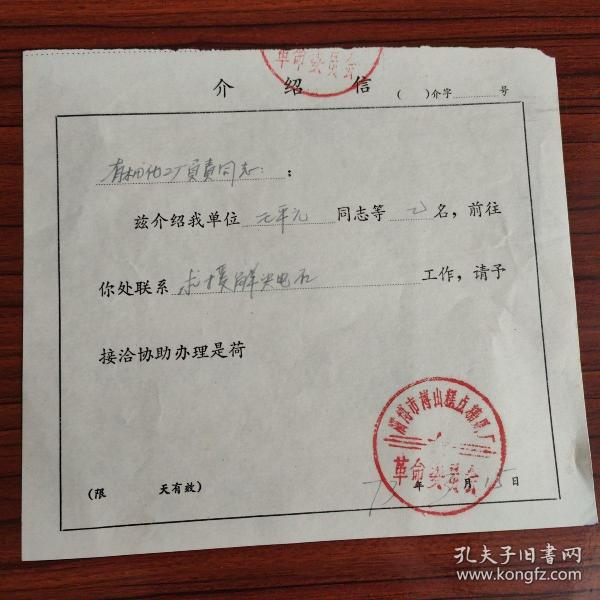 革命委员会
介 绍 信 ( )介字 号
有机化工厂负责同志：
兹介绍我单位 同志等 2 名，前往
你处联系 解决电石 工作，请予
接洽协助办理是荷
淄博市博山糕点糖果厂
革命委员会
(限 天有效) 年 月 15 日
孔夫子旧书网
www.kongfz.com